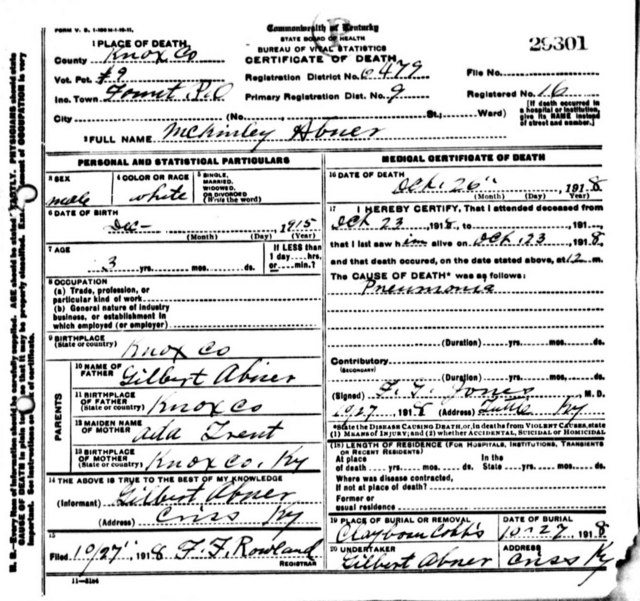 FORM V. S. 1-100M-1-10-11.
Commonwealth of Kentucky
STATE BOARD OF HEALTH
BUREAU OF VITAL STATISTICS
CERTIFICATE OF DEATH
29301
1 PLACE OF DEATH
County Knox Co
Vot. Pct. #9
Inc. Town Fount P.O
City (No. St.; Ward)
Registration District No. 6479
Primary Registration Dist. No. 9
File No.
Registered No. 16
[If death occurred in a hospital or institution, give its NAME instead of street and number.]
2 FULL NAME McKinley Abner
PERSONAL AND STATISTICAL PARTICULARS
3 SEX male
4 COLOR OR RACE white
5 SINGLE, MARRIED, WIDOWED, OR DIVORCED (Write the word)
6 DATE OF BIRTH
Dec- 1915
(Month) (Day) (Year)
7 AGE
3 yrs. mos. ds.
If LESS than 1 day hrs. or min.?
8 OCCUPATION
(a) Trade, profession, or particular kind of work
(b) General nature of industry business, or establishment in which employed (or employer)
9 BIRTHPLACE (State or country) Knox Co
PARENTS
10 NAME OF FATHER Gilbert Abner
11 BIRTHPLACE OF FATHER (State or country) Knox Co
12 MAIDEN NAME OF MOTHER Ada Trent
13 BIRTHPLACE OF MOTHER (State or country) Knox Co, Ky
14 THE ABOVE IS TRUE TO THE BEST OF MY KNOWLEDGE
(Informant) Gilbert Abner
(Address) Criss Ky
15
Filed 10/27 1918 F. F. Rowland
REGISTRAR
11-3184
MEDICAL CERTIFICATE OF DEATH
16 DATE OF DEATH Oct. 26" 1918
(Month) (Day) (Year)
17 I HEREBY CERTIFY, That I attended deceased from
Oct 23 1918, to 191
that I last saw him alive on Oct, 23 1918
and that death occurred, on the date stated above, at 12 m.
The CAUSE OF DEATH* was as follows:
Pneumonia
(Duration) yrs. mos. ds.
Contributory
(SECONDARY)
(Duration) yrs. mos. ds.
(Signed) F. G. Jones M. D.
10/27 1918 (Address) Ky
*State the DISEASE CAUSING DEATH, or, in deaths from VIOLENT CAUSES, state
(1) MEANS OF INJURY; and (2) whether ACCIDENTAL, SUICIDAL or HOMICIDAL
18 LENGTH OF RESIDENCE (FOR HOSPITALS, INSTITUTIONS, TRANSIENTS OR RECENT RESIDENTS)
At place of death yrs. mos. ds. In the State yrs. mos. ds.
Where was disease contracted, if not at place of death?
Former or usual residence
19 PLACE OF BURIAL OR REMOVAL Claybourn Cobb's
DATE OF BURIAL 10-27 1918
20 UNDERTAKER Gilbert Abner
ADDRESS Criss Ky